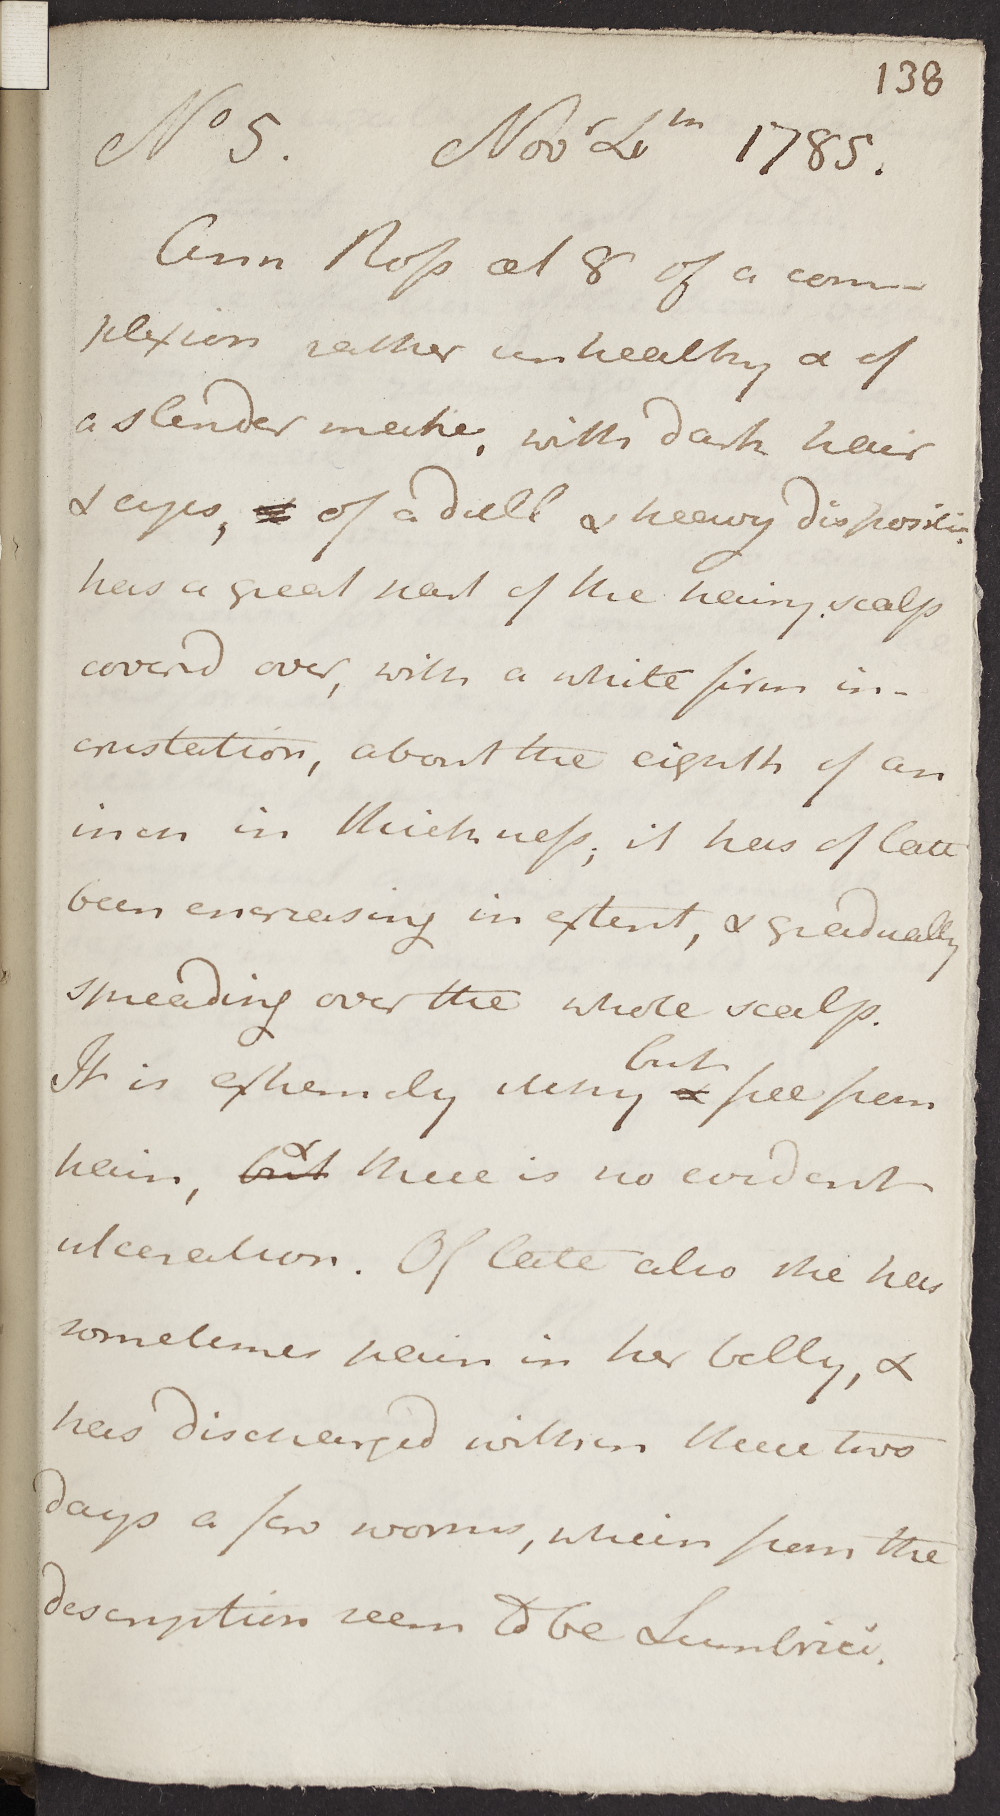 138
No 5. Novr 4th 1785.
Ann Ross æt 8 of a com-
plexion rather unhealthy & of
a slender make, with dark hair
& eyes, & of a dull & heavy dispositi:
has a great part of the hairy scalp
covered over, with a white firm in-
crustation, about the eighth of an
inch in thickness, it has of late
been encreasing in extent, & gradually
spreading over the whole scalp.
but
It is extremely itchy & free from
pain, but & there is no evident
ulceration. Of late also she has
sometimes pain in her belly, &
has discharged within these two
days a few worms, which from the
description seem to be Lumbrici.